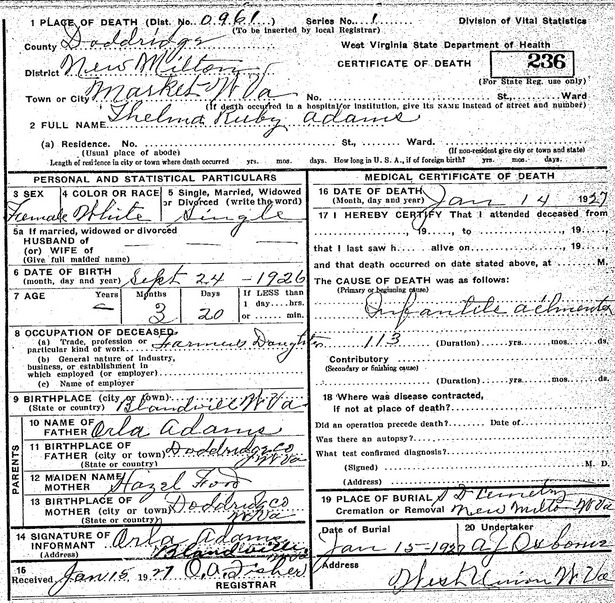 1 PLACE OF DEATH (Dist. No. 0961) Series No. 1 Division of Vital Statistics
(To be inserted by local Registrar)
County Doddridge West Virginia State Department of Health
District New Milton CERTIFICATE OF DEATH 236
(For State Reg. use only)
Town or City Market W Va No. St., Ward
(If death occurred in a hospital or institution, give its NAME instead of street and number)
2 FULL NAME Thelma Ruby Adams
(a) Residence. No. St., Ward.
(Usual place of abode) (If non-resident give city or town and state)
Length of residence in city or town where death occurred yrs. mos. days. How long in U. S. A., if of foreign birth? yrs. mos. days.
PERSONAL AND STATISTICAL PARTICULARS
3 SEX 4 COLOR OR RACE 5 Single, Married, Widowed
or Divorced (write the word)
Female White Single
5a If married, widowed or divorced
HUSBAND of
(or) WIFE of
(Give full maiden name)
6 DATE OF BIRTH
(month, day and year) Sept 24 - 1926
7 AGE Years Months Days If LESS than
1 day....hrs.
- 3 20 or.... min.
8 OCCUPATION OF DECEASED
(a) Trade, profession or
particular kind of work Farmers Daughter
(b) General nature of industry,
business, or establishment in
which employed (or employer)
(c) Name of employer
9 BIRTHPLACE (city or town) Blandville W Va
(State or country)
PARENTS
10 NAME OF
FATHER Orla Adams
11 BIRTHPLACE OF
FATHER (city or town) Doddridge Co
(State or country) W Va
12 MAIDEN NAME
MOTHER Hazel Ford
13 BIRTHPLACE OF
MOTHER (city or town) Doddridge Co
(State or country) W Va
14 SIGNATURE OF
INFORMANT Orla Adams
(Address) Blandville
15
Received Jan 15, 1927 O. A. Fisher
REGISTRAR
MEDICAL CERTIFICATE OF DEATH
16 DATE OF DEATH
(Month, day and year) Jan 14 1927
17 I HEREBY CERTIFY That I attended deceased from
19, to , 19
that I last saw h alive on , 19
and that death occurred on date stated above, at M.
The CAUSE OF DEATH was as follows:
(Primary or beginning cause)
Infantile ailments
113 (Duration) yrs. mos. ds.
Contributory
(Secondary or finishing cause)
(Duration) yrs. mos. ds.
18 Where was disease contracted,
if not at place of death?
Did an operation precede death? Date of
Was there an autopsy?
What test confirmed diagnosis?
(Signed) M. D.
(Address)
19 PLACE OF BURIAL Cemetry
Cremation or Removal New Milton W Va
Date of Burial 20 Undertaker
Jan 15-1927 A J Osborne
Address
West Union W Va